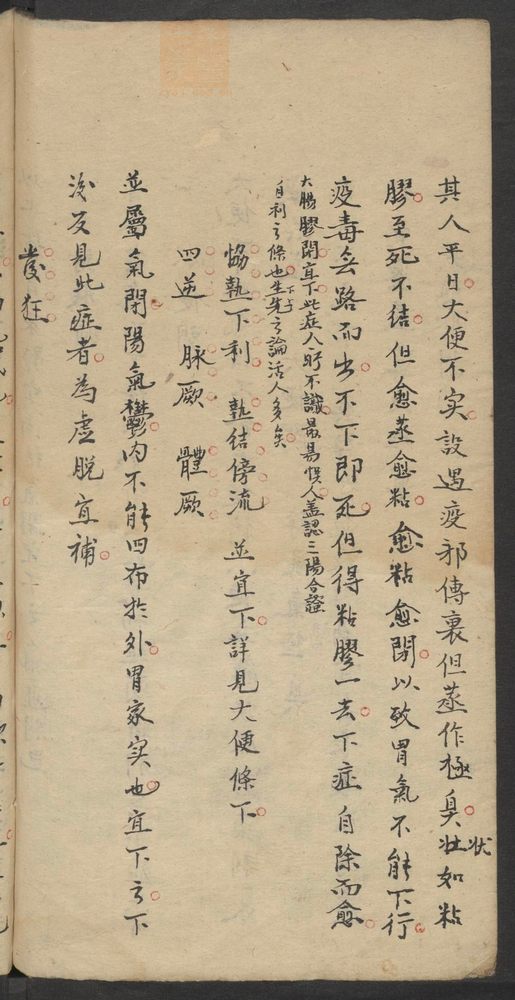 其人平日大便不实設遇疫邪傳裏但蒸作極臭壮如粘
状
膠至死不结但愈蒸愈粘愈粘愈閉以致胃氣不能下行
疫毒无路而出不下即死但得粘膠一去下症自除而愈
大腸膠閉宜下此症人所不識最易悞人盖認三陽合證
自利之條也生先之論活人多矣
下上
恊熱下利　熱结傍流　並宜下詳見大便條下
四逆　脉厥　體厥
並屬氣閉陽氣鬱内不能四布扵外胃家实也宜下之下
後反見此症者為虚脱宜補
發狂